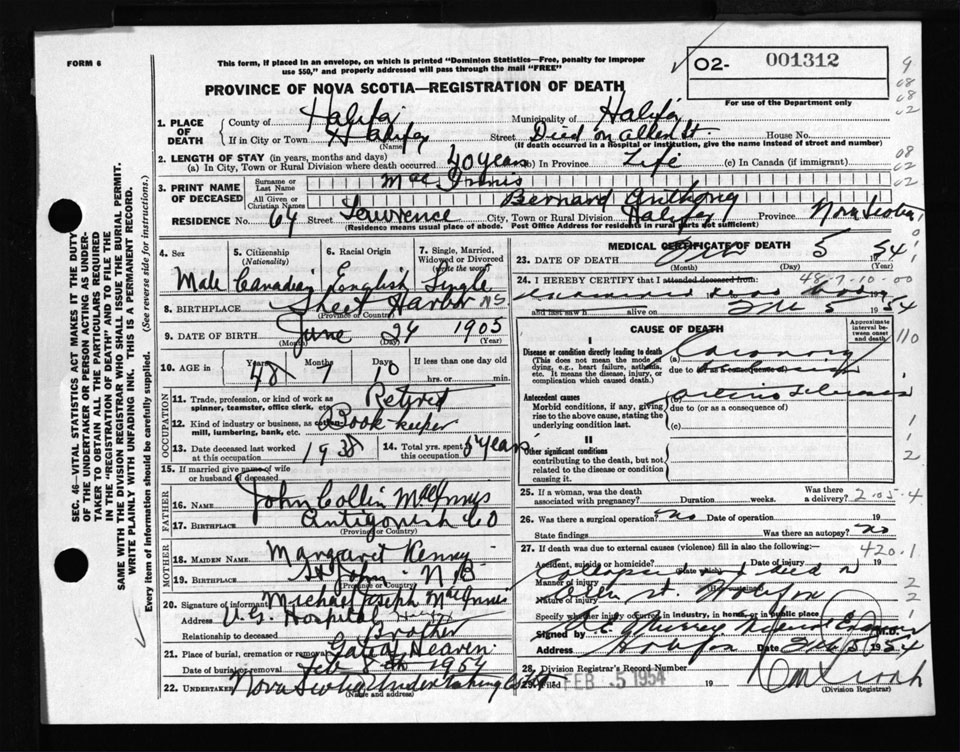 FORM 6
This form, if placed in an envelope, on which is printed "Dominion Statistics—Free, penalty for improper
use $50," and properly addressed will pass through the mail "FREE"
O2- 001312
For use of the Department only
PROVINCE OF NOVA SCOTIA—REGISTRATION OF DEATH
1. PLACE OF DEATH
County of Halifax Municipality of Halifax
If in City or Town Halifax (Name) Street Died on Allen St. House No.
(If death occurred in a hospital or institution, give the name instead of street and number)
2. LENGTH OF STAY (in years, months and days)
(a) In City, Town or Rural Division where death occurred 40 years (b) In Province Life (c) In Canada (if immigrant)
3. PRINT NAME OF DECEASED
Surname or Last Name Mac Innis
All Given or Christian Names Bernard Anthony
RESIDENCE No. 64 Street Lawrence City, Town or Rural Division Halifax Province Nova Scotia
(Residence means usual place of abode. Post Office Address for residents in rural parts not sufficient)
4. Sex
Male
5. Citizenship (Nationality)
Canadian
6. Racial Origin
English
7. Single, Married, Widowed or Divorced (write the word)
Single
8. BIRTHPLACE Sheet Harbor N.S.
(Province or Country)
9. DATE OF BIRTH June 26 1905
(Month) (Day) (Year)
10. AGE in Years Months Days If less than one day old
48 7 10 hrs. or min.
OCCUPATION
11. Trade, profession, or kind of work as spinner, teamster, office clerk, etc. Retired
12. Kind of industry or business, as cotton mill, lumbering, bank, etc. Book-keeper
13. Date deceased last worked at this occupation 1938
14. Total yrs. spent in this occupation years
15. If married give name of wife or husband of deceased
FATHER
16. NAME John Collin MacInnis
17. BIRTHPLACE Antigonish Co
(Province or Country)
MOTHER
18. MAIDEN NAME. Margaret Kenny
19. BIRTHPLACE St John N B
(Province or Country)
20. Signature of informant Michael Joseph MacInnis
Address V.G. Hospital
Relationship to deceased Brother
21. Place of burial, cremation or removal Gate of Heaven
Date of burial or removal Feb 8th 1954
22. UNDERTAKER Nova Scotia Undertaking
(Name and address)
MEDICAL CERTIFICATE OF DEATH
23. DATE OF DEATH Feb 5 1954
(Month) (Day) (Year)
24. I HEREBY CERTIFY that I attended deceased from:
48-7-10-00
and last saw h alive on Feb 5 1954
CAUSE OF DEATH
Approximate interval between onset and death
I
Disease or condition directly leading to death
(This does not mean the mode of dying, e.g., heart failure, asthenia, etc. It means the disease, injury, or complication which caused death.)
(a) Coronary
due to (or as a consequence of)
Antecedent causes
Morbid conditions, if any, giving rise to the above cause, stating the underlying condition last.
(b)
due to (or as a consequence of)
(c)
II
Other significant conditions
contributing to the death, but not related to the disease or condition causing it.
25. If a woman, was the death associated with pregnancy? Duration weeks. Was there a delivery? 2.05.4
26. Was there a surgical operation? no Date of operation 19
State findings Was there an autopsy? no
27. If death was due to external causes (violence) fill in also the following:—
420.1
Accident, suicide or homicide? (state which) Date of injury 19
Manner of injury Collapsed and died on
Nature of injury Allen St. Halifax
Specify whether injury occurred in industry, in home or in public place
Signed by M.D.
Address Halifax Date Feb 5 1954
28. Division Registrar's Record Number
29. Filed FEB 5 1954 19
(Division Registrar)
SEC. 46—VITAL STATISTICS ACT MAKES IT THE DUTY
OF THE UNDERTAKER OR PERSON ACTING AS UNDER-
TAKER TO OBTAIN ALL THE PARTICULARS REQUIRED
IN THE "REGISTRATION OF DEATH" AND TO FILE THE
SAME WITH THE DIVISION REGISTRAR WHO SHALL ISSUE THE BURIAL PERMIT.
WRITE PLAINLY WITH UNFADING INK. THIS IS A PERMANENT RECORD.
Every item of information should be carefully supplied. (See reverse side for instructions.)